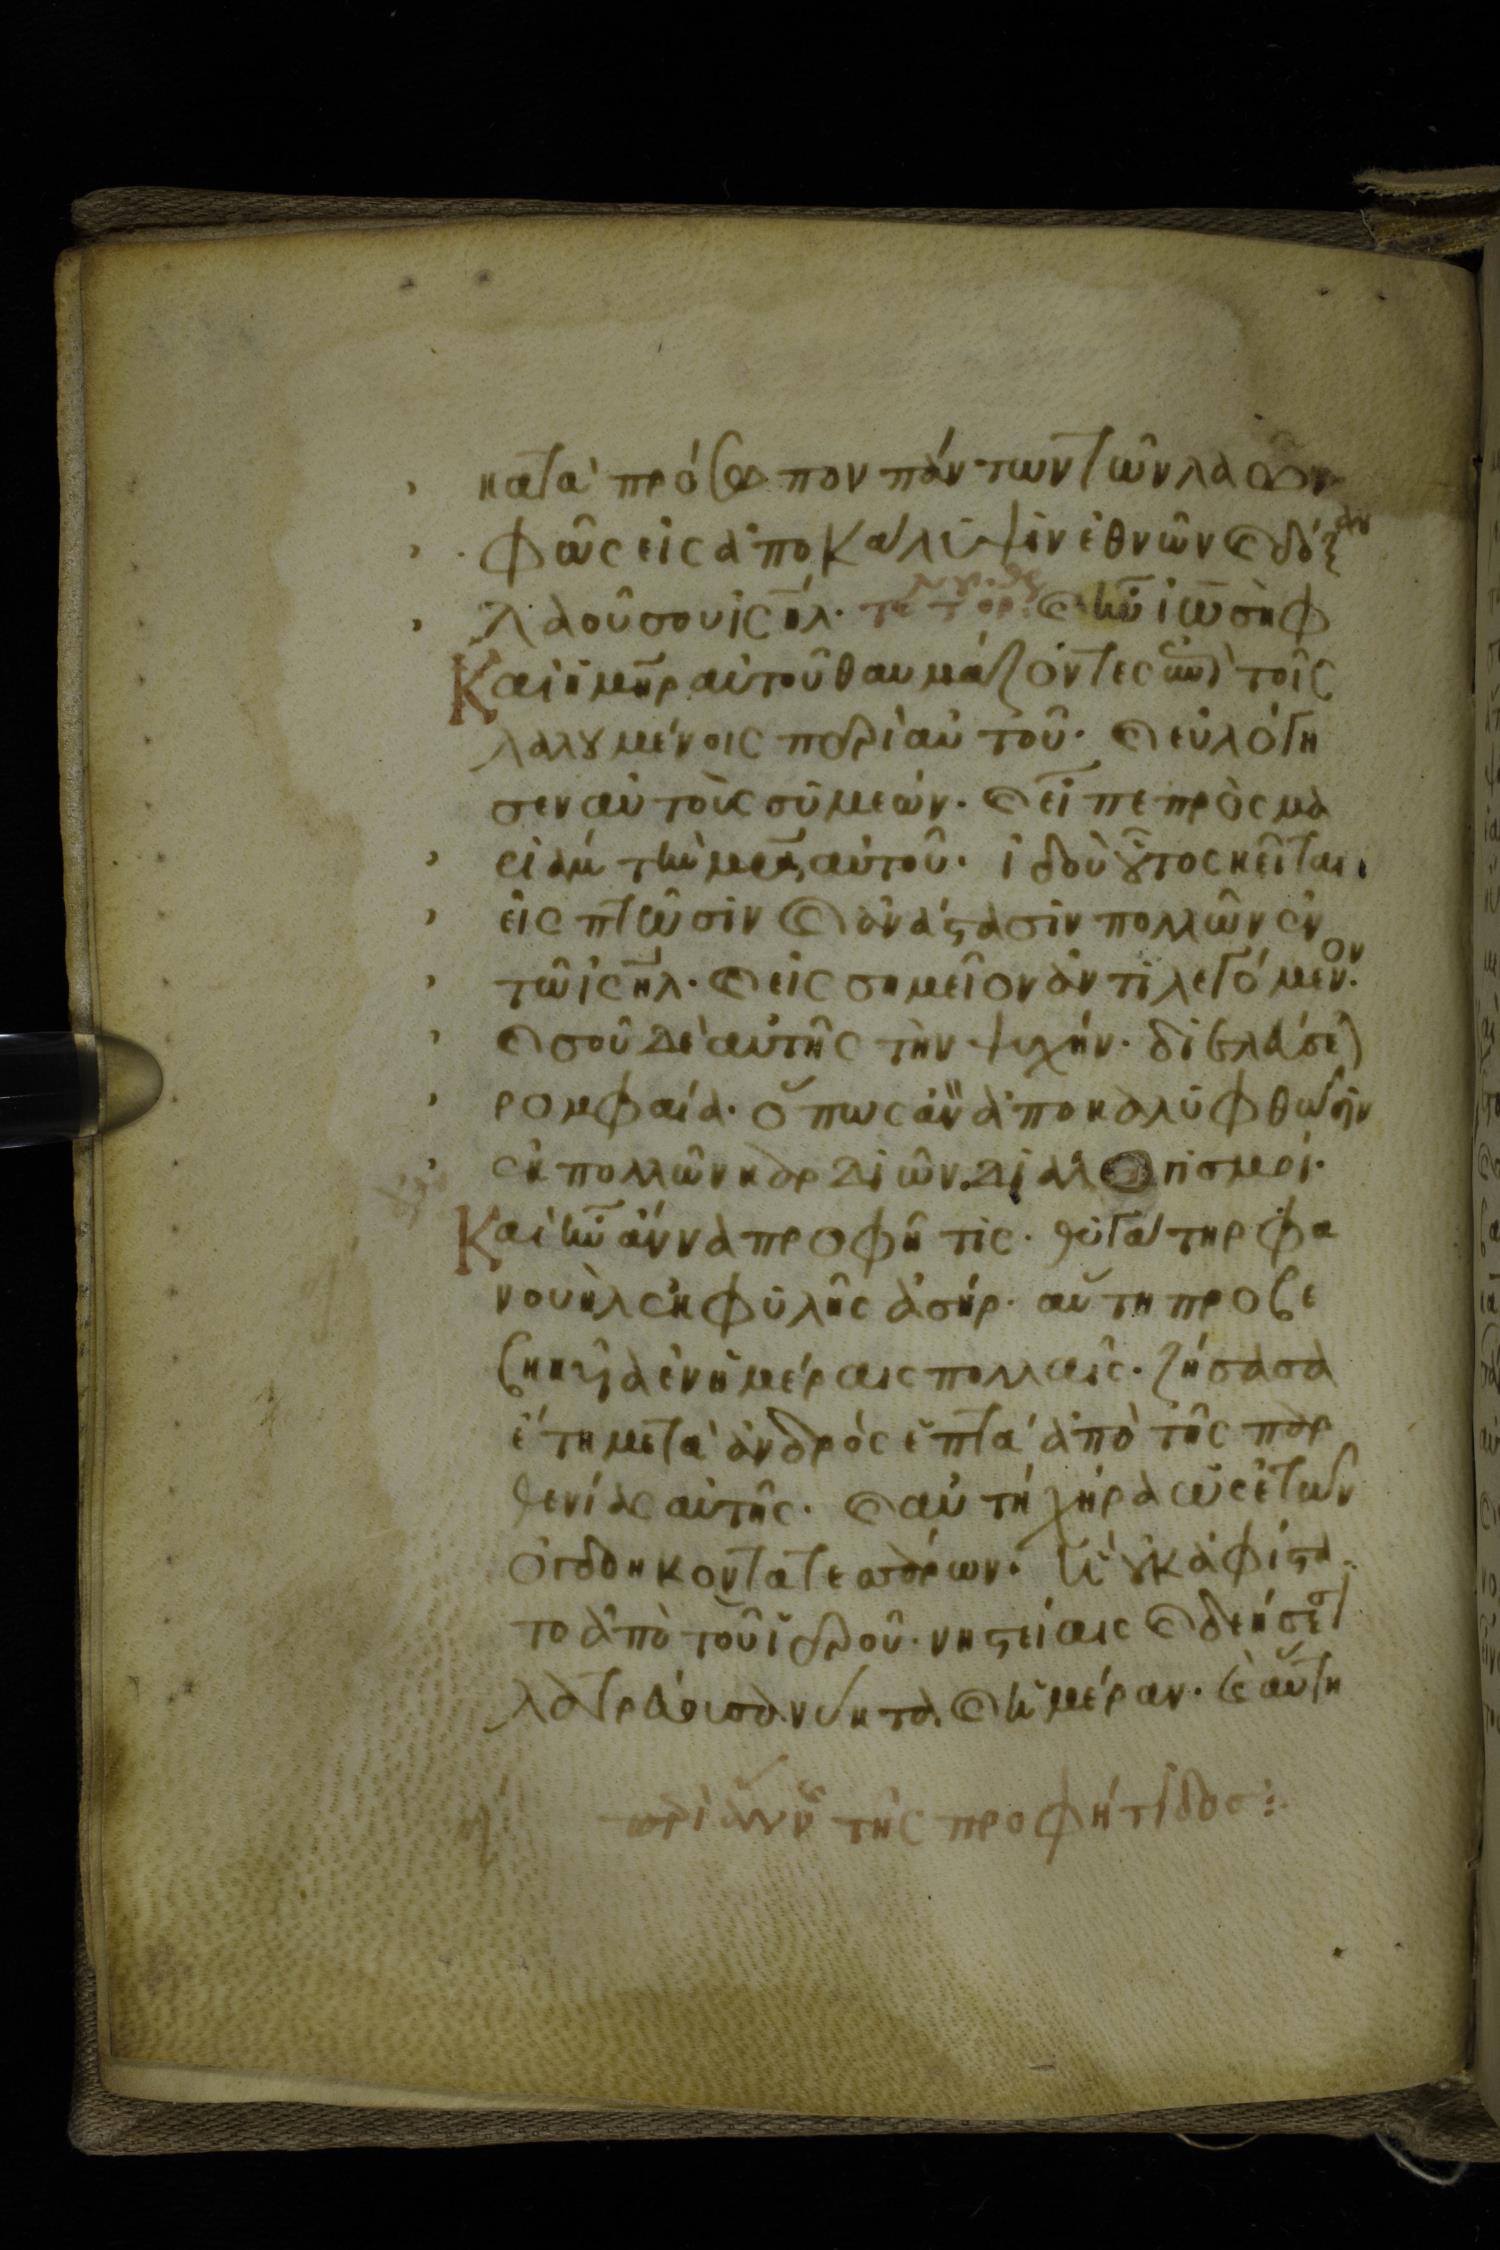 κατὰ πρόσωπον πάντων τῶν λαῶν·
φῶς εἰς ἀποκάλυψιν ἐθνῶν (καὶ) δόξαν
λαοῦ σου ἰσηλ· (καὶ) ἦν ἰωσὴφ
Καὶ ἡ μηρ αὐτοῦ θαυμάζοντες ἐπὶ τοῖς
λαλουμένοις περὶ αὐτοῦ· (καὶ) εὐλόγη
σεν αὐτοὺς συμεών· (καὶ) εἶπε πρὸς μα
ριὰμ τὴν μρα αὐτοῦ· ἰδοὺ οὗτος κεῖται
εἰς πτῶσιν (καὶ) ἀνάστασιν πολλῶν ἐν
τῶ ἰσηλ· (καὶ) εἰς σημεῖον ἀντιλεγόμενον·
(καὶ) σοῦ δὲ αὐτῆς τὴν ψυχήν· διελεύσεται
ρομφαία· ὅπως ἂν ἀποκαλυφθῶσιν
ἐκ πολλῶν καρδιῶν διαλογισμοί·
Καὶ ἦν ἄννα προφῆτις· θυγάτηρ φα
νουὴλ ἐκ φυλῆς ἀσήρ· αὕτη προβε
βηκυῖα ἐν ἡμέραις πολλαῖς· ζήσασα
ἔτη μετὰ ἀνδρὸς ἑπτὰ ἀπὸ τῆς παρ
θενίας αὐτῆς· (καὶ) αὐτὴ χήρα ὡς ἐτῶν
ὀγδοηκοντατεσσάρων· ἣ οὐκ ἀφίστα
το ἀπὸ τοῦ ἱεροῦ· νηστείαις (καὶ) δεήσεσι
λατρεύουσα νύκτα (καὶ) ἡμέραν· (καὶ) αὕτη
η περὶ ἄννης τῆς προφήτιδος: